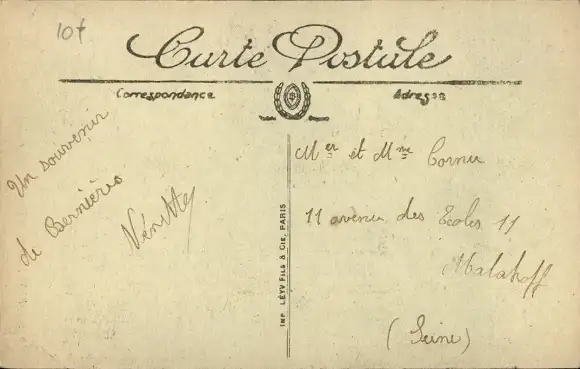 10f
Carte Postale
Correspondance
Adresse
Un souvenir
de Bernières
IMP. LÉVY FILS & CIE, PARIS
Mer et Mme Cornu
11 avenue des Ecoles 11
Malakoff
(Seine)